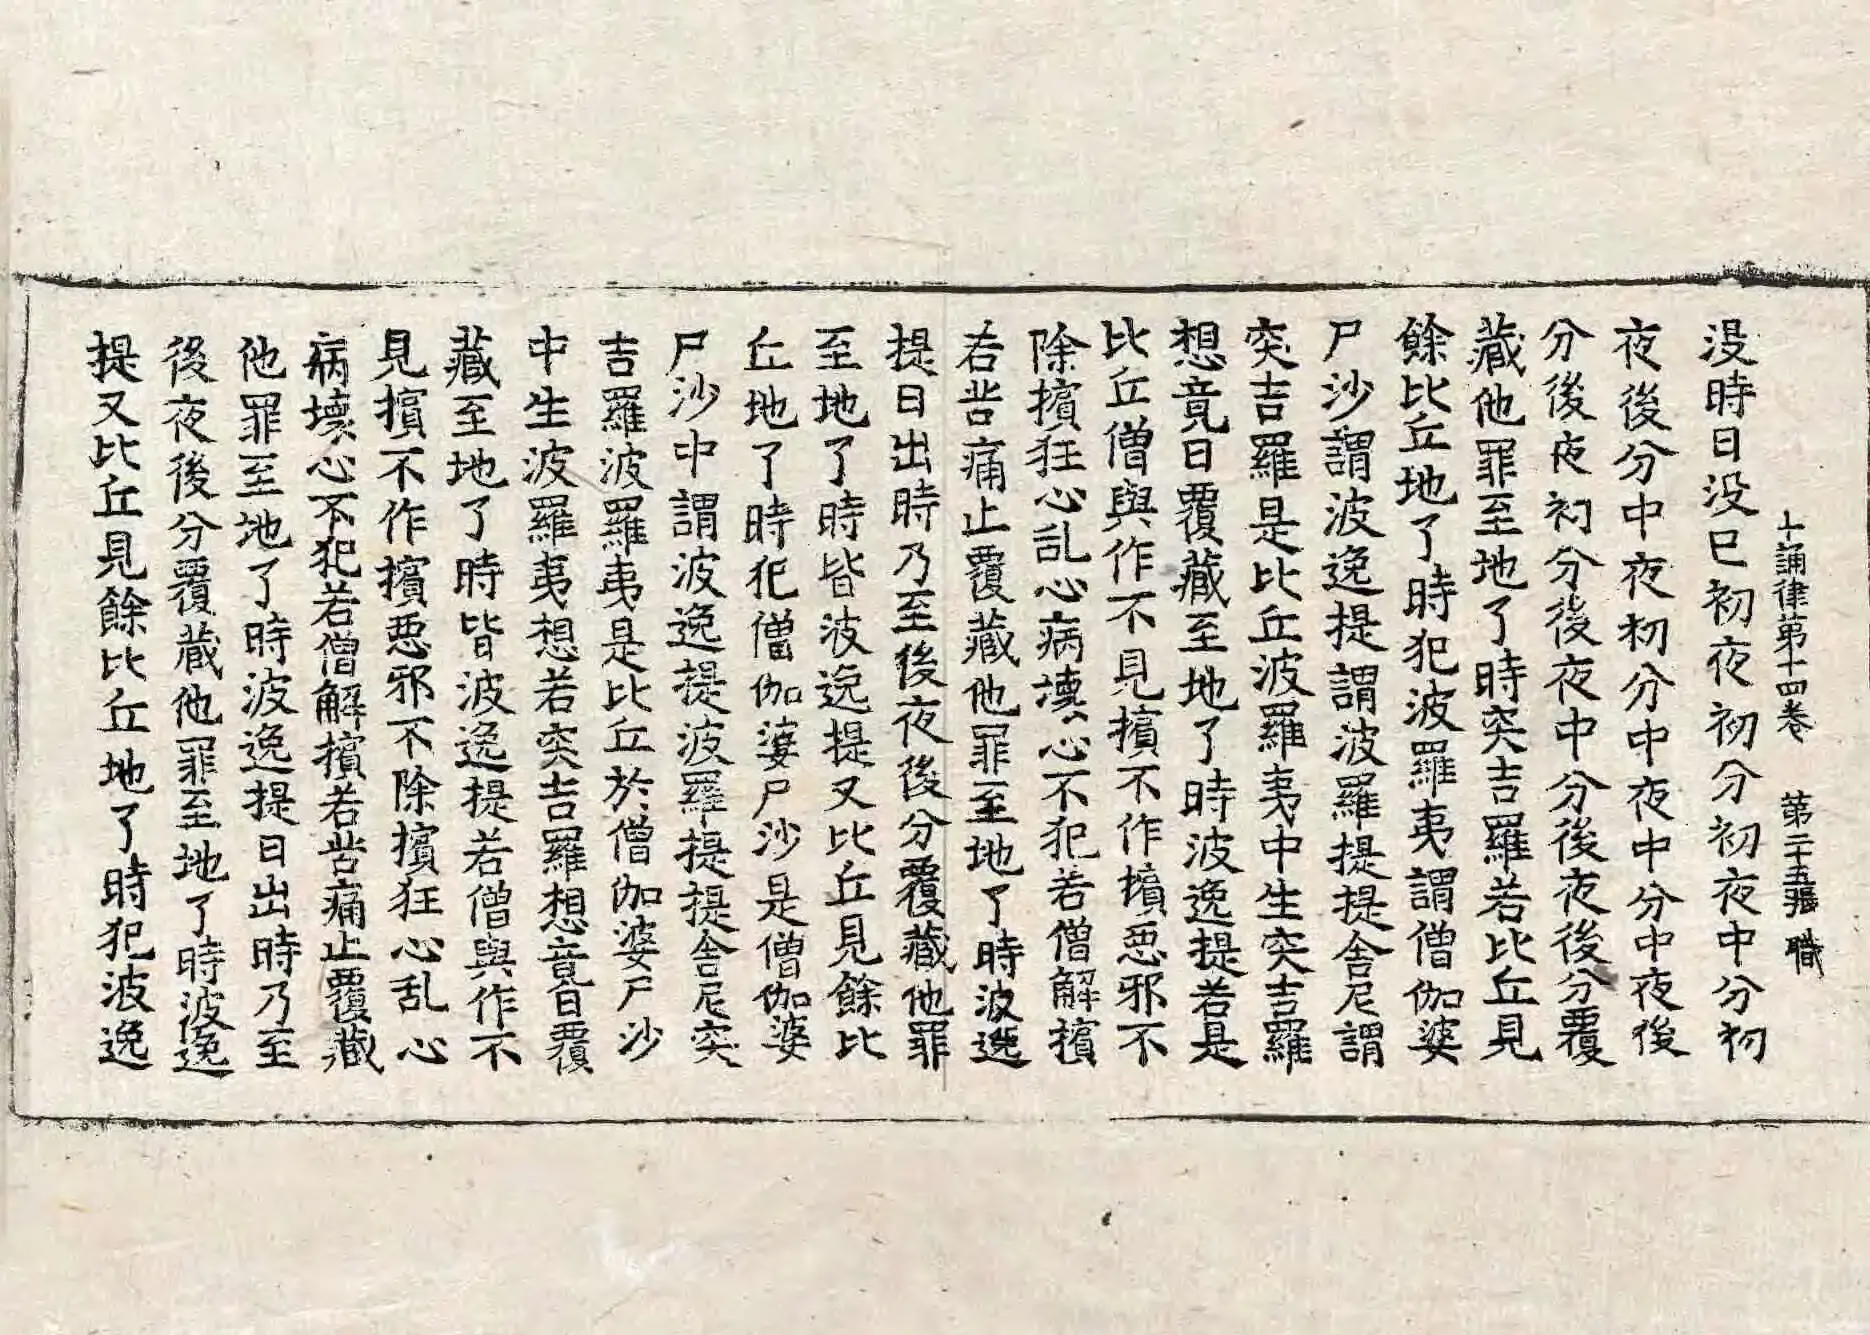 十誦律第十四卷　第二十五張　職
没時日没已初夜初分初夜中分初
夜後分中夜初分中夜中分中夜後
分後夜初分後夜中分後夜後分覆
藏他罪至地了時突吉羅若比丘見
餘比丘地了時犯波羅夷謂僧伽婆
尸沙謂波逸提謂波羅提提舍尼謂
突吉羅是比丘波羅夷中生突吉羅
想竟日覆藏至地了時波逸提若是
比丘僧與作不見擯不作擯惡邪不
除擯狂心乱心病壞心不犯若僧解擯
若苦痛止覆藏他罪至地了時波逸
提日出時乃至後夜後分覆藏他罪
至地了時皆波逸提又比丘見餘比
丘地了時犯僧伽婆尸沙是僧伽婆
尸沙中謂波逸提波羅提提舍尼突
吉羅波羅夷是比丘於僧伽婆尸沙
中生波羅夷想若突吉羅想竟日覆
藏至地了時皆波逸提若僧與作不
見擯不作擯惡邪不除擯狂心乱心
病壞心不犯若僧解擯若苦痛止覆藏
他罪至地了時波逸提日出時乃至
後夜後分覆藏他罪至地了時波逸
提又比丘見餘比丘地了時犯波逸